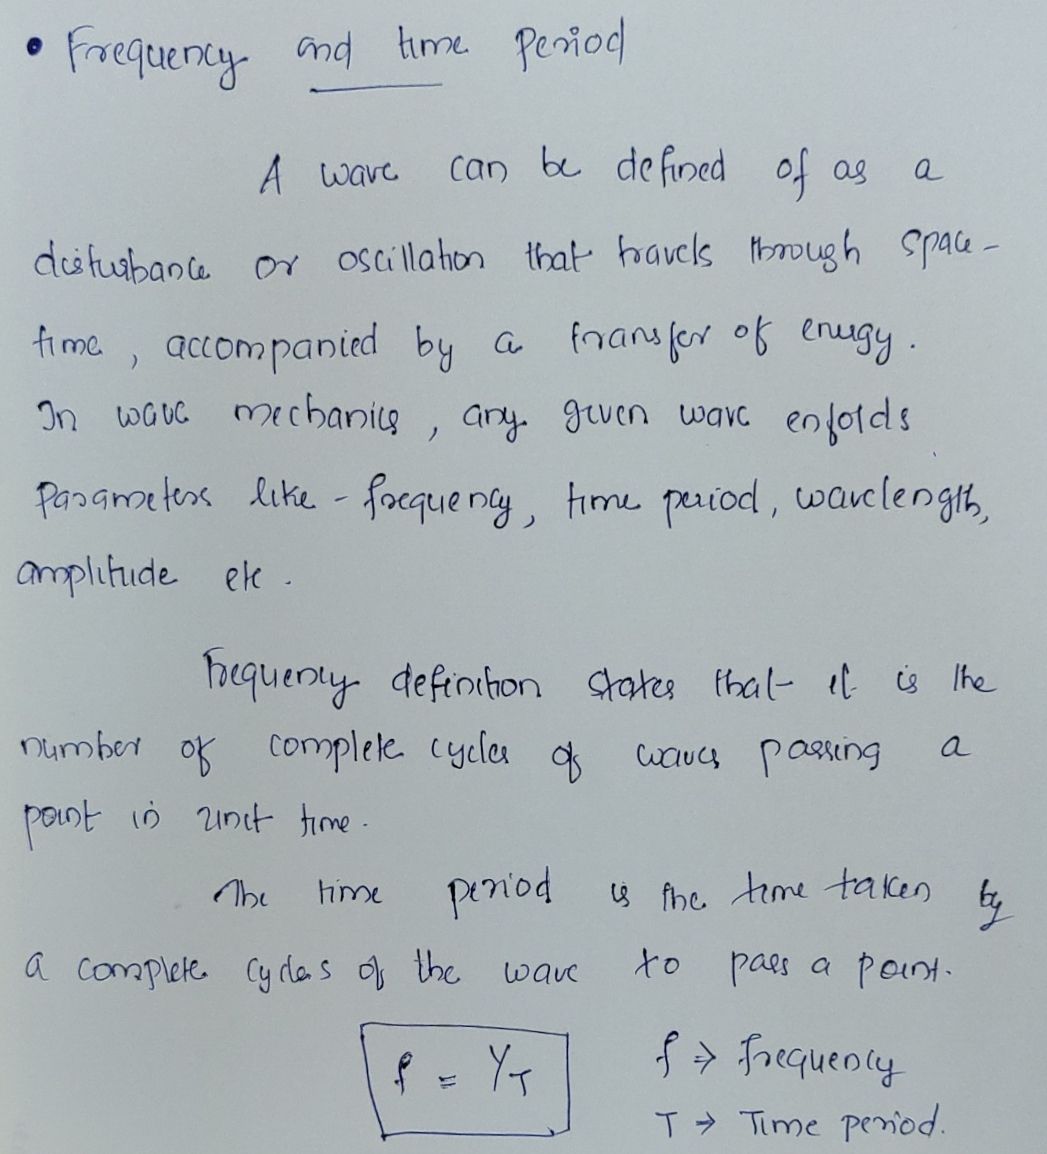 • Frequency and time Period
A wave can be defined of as a
disturbance or oscillation that travels through space-
time, accompanied by a transfer of energy.
In wave mechanics, any given wave enfolds
Parameters like - frequency, time period, wavelength,
amplitude etc.
Frequency definition states that it is the
number of complete cycles of waves passing a
point in unit time.
The time period is the time taken by
a complete cycles of the wave to pass a point.
f = 1/T f ⇒ frequency
T → Time period.